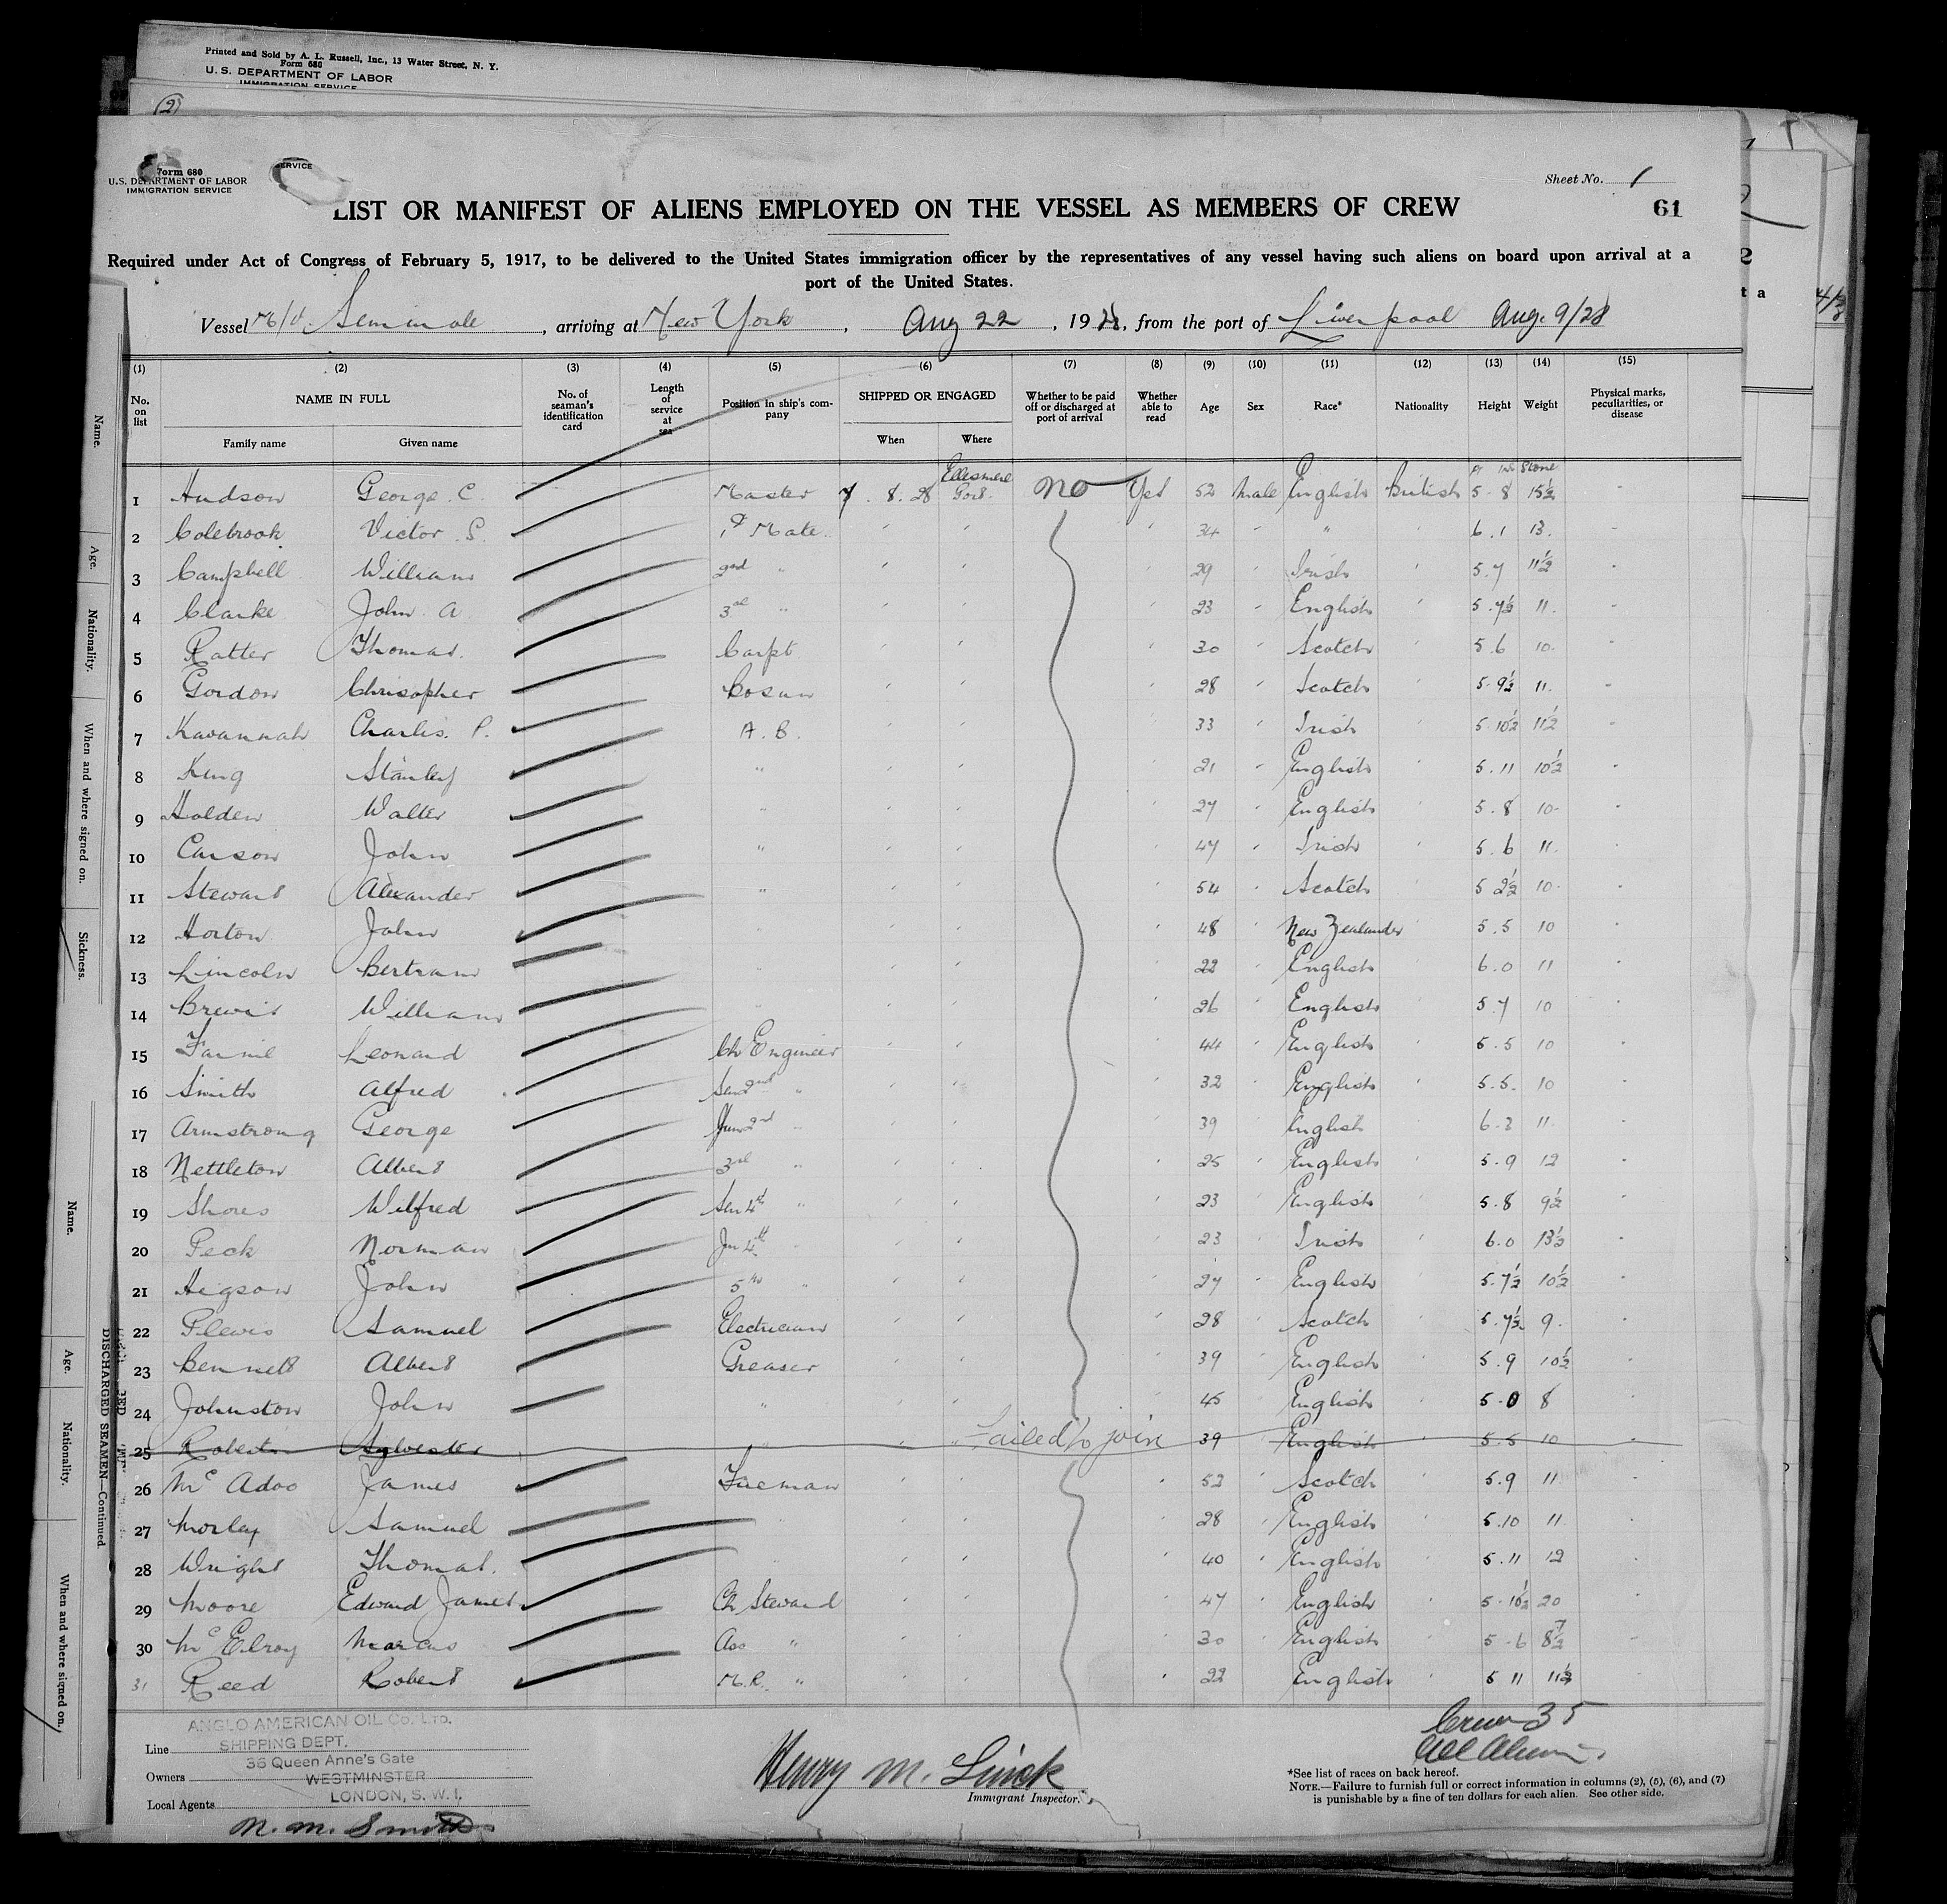 Printed and Sold by A. L. Russell, Inc., 13 Water Street, N. Y.
Form 680
U. S. DEPARTMENT OF LABOR
IMMIGRATION SERVICE
(2)
Form 680
U.S. DEPARTMENT OF LABOR
IMMIGRATION SERVICE
SERVICE
Sheet No. 1
LIST OR MANIFEST OF ALIENS EMPLOYED ON THE VESSEL AS MEMBERS OF CREW 61
Required under Act of Congress of February 5, 1917, to be delivered to the United States immigration officer by the representatives of any vessel having such aliens on board upon arrival at a
port of the United States.
Vessel Seminole, arriving at New York, Aug 22, 1928, from the port of Liverpool Aug. 9/28
(1) (2) (3) (4) (5) (6) (7) (8) (9) (10) (11) (12) (13) (14) (15)
No. on list NAME IN FULL Family name Given name No. of seaman's identification card Length of service at sea Position in ship's company SHIPPED OR ENGAGED When Where Whether to be paid off or discharged at port of arrival Whether able to read Age Sex Race* Nationality Height Weight Physical marks, peculiarities, or disease
Ft Ins Stone
1 Hudson George C. Master 7. 8. 28 Ellesmere Port. No Yes 52 Male English British 5 8 15½
2 Colebrook Victor S. 1st Mate 34 " 6.1 13.
3 Campbell William 2nd " 29 Irish 5.7 11½
4 Clarke John A 3rd " 23 English 5.7½ 11.
5 Ratter Thomas. Carpt 30 Scotch 5 6 10.
6 Gordon Chrisopher Bosun 28 Scotch 5.9½ 11.
7 Kavannah Charles. P. A. B. 33 Irish 5 10½ 11½
8 King Stanley " 21 English 5.11 10½
9 Holden Walter " 27 English 5.8 10
10 Carson John " 47 Irish 5.6 11.
11 Stewart Alexander " 54 Scotch 5 2½ 10
12 Horton John " 48 New Zealander 5.5 10
13 Lincoln Bertram " 22 English 6.0 11
14 Brewis William " 26 English 5.7 10
15 Leonard Ch Engineer 44 English 5.5 10
16 Smith Alfred Sen 2nd " 32 English 5.5. 10
17 Armstrong George Jun 2nd " 39 English 6.2 11
18 Nettleton Albert 3rd " 25 English 5.9 12
19 Shores Wilfred Sen 4th " 23 English 5.8 9½
20 Peck Norman Jn 4th 23 Irish 6.0 13½
21 Higson John 5th " 27 English 5.7½ 10½
22 Plews Samuel Electrician 28 Scotch 5.7½ 9.
23 Bennett Albert Greaser 39 English 5.9 10½
24 Johnston John " 45 English 5.0 8
25 Roberts Sylvester " Failed to join 39 English 5.5 10
26 McAdoo James Fireman 52 Scotch 5.9 11
27 Morley Samuel " 28 English 5.10 11
28 Wright Thomas. " 40 English 5.11 12
29 Moore Edward James Ch Steward 47 English 5.10½ 20
30 McElroy Marcus Ass " 30 English 5.6 8½
31 Reed Robert M.R. " 22 English 5 11 11½
Crew 35
Line
Owners
Local Agents
ANGLO AMERICAN OIL Co. LTD.
SHIPPING DEPT.
36 Queen Anne's Gate
WESTMINSTER
LONDON, S. W. 1.
N. M. Smith
Henry M.
Immigrant Inspector.
*See list of races on back hereof.
NOTE.—Failure to furnish full or correct information in columns (2), (5), (6), and (7)
is punishable by a fine of ten dollars for each alien. See other side.
Name.
Age.
Nationality.
When and where signed on.
Sickness.
Name.
Age.
Nationality.
When and where signed on.
DISCHARGED SEAMEN—Continued.